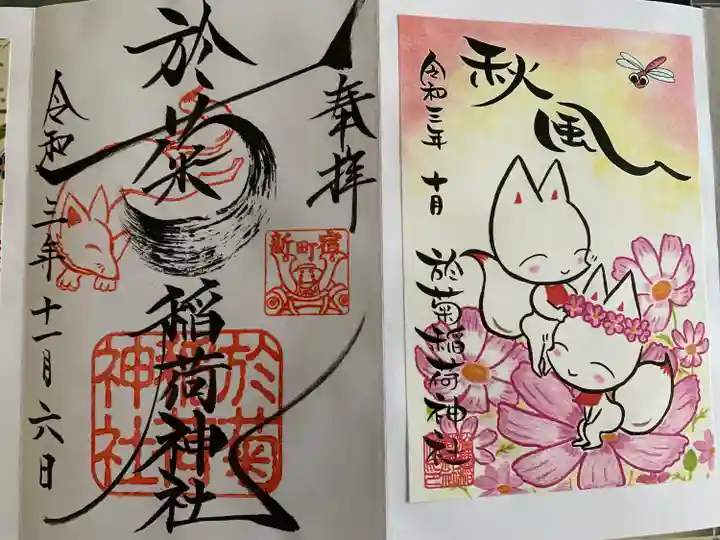 奉拝
於菊稲荷神社
令和三年十一月六日
新町宿
於菊
稲荷
神社
秋風
令和三年 十月
於菊稲荷神社